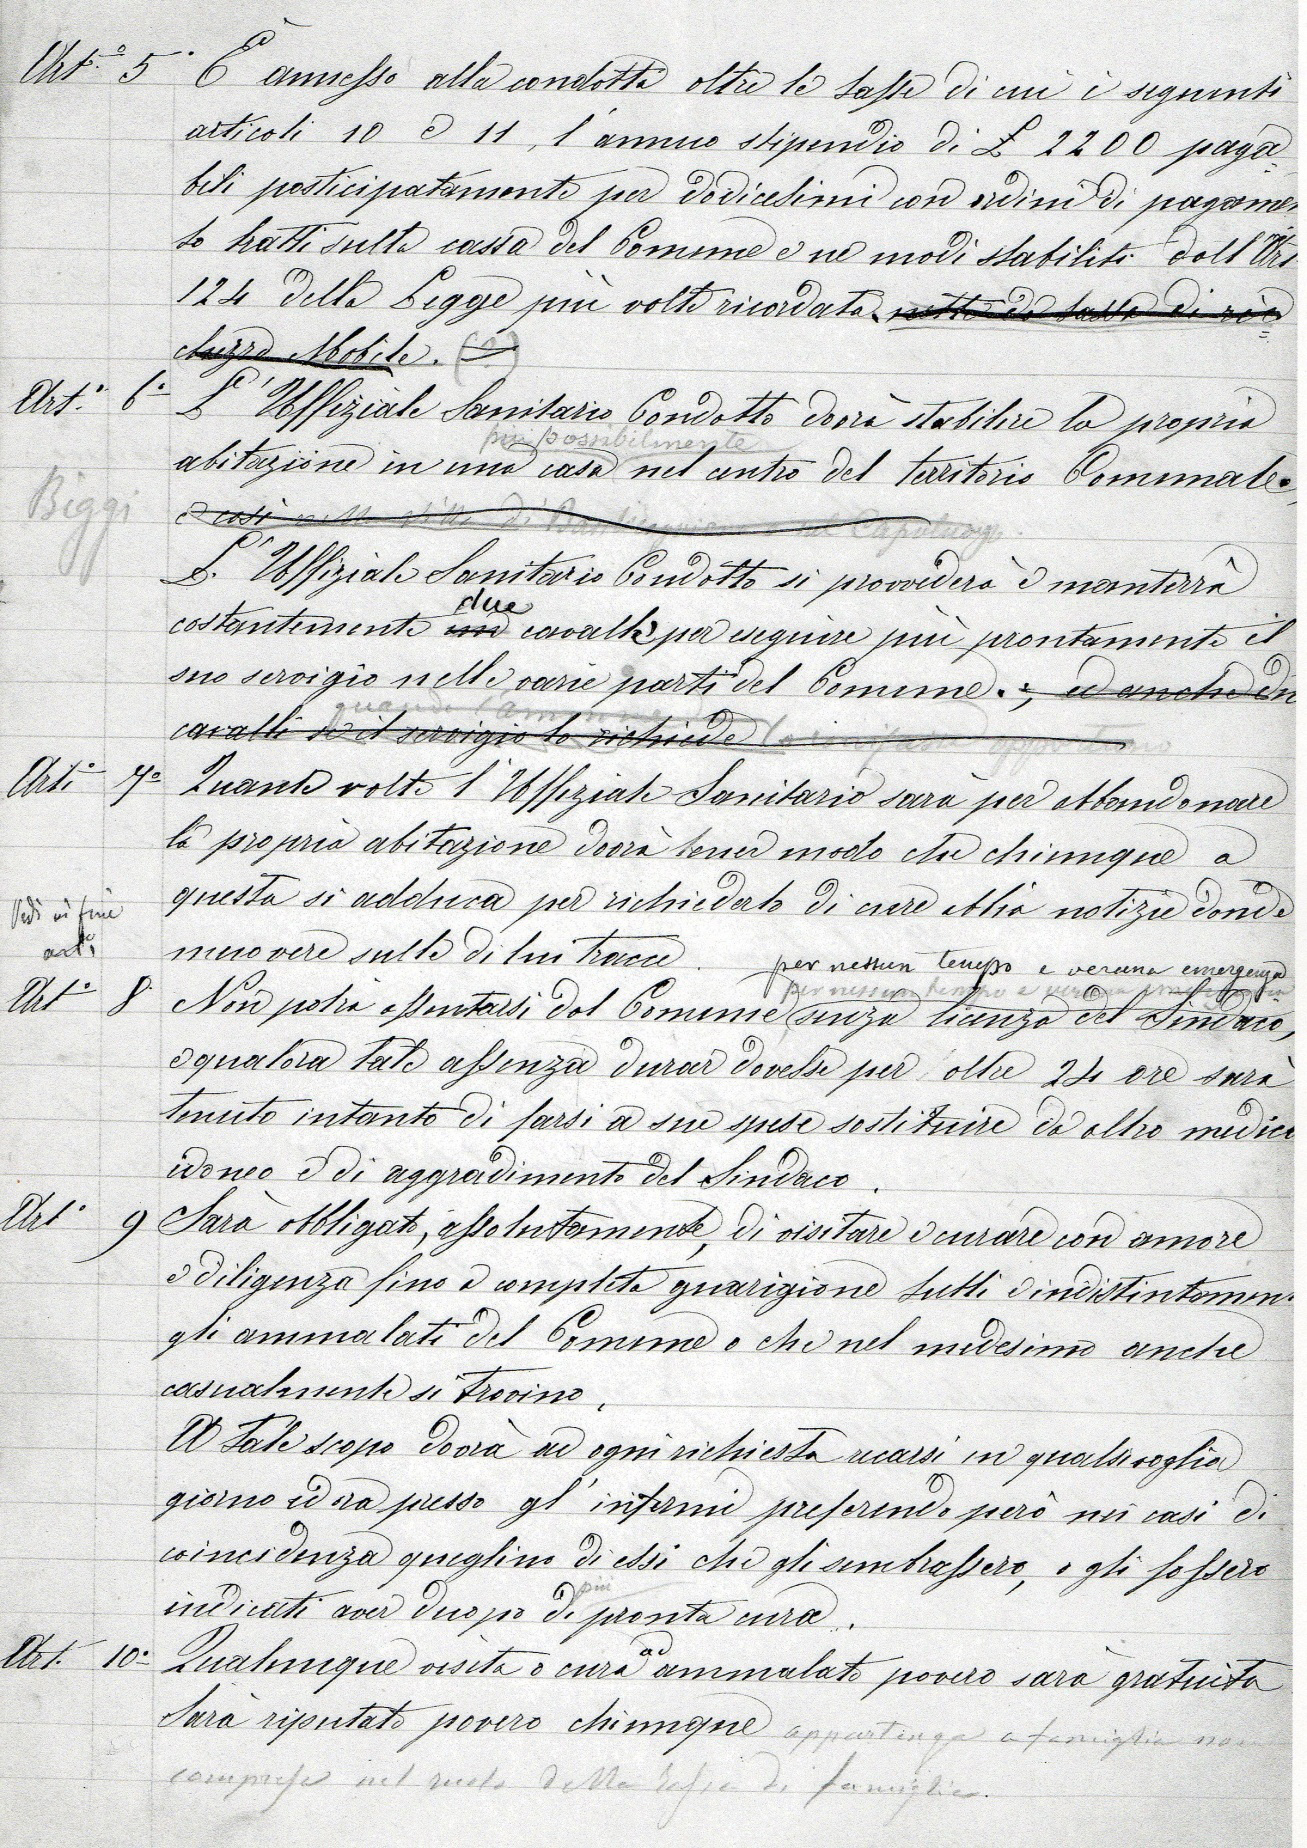 Art.° 5° È annesso alla condotta oltre le tasse di cui i seguenti
articoli 10 e 11, l'annuo stipendio di £ 2200 paga
bili posticipatamente per dodicesimi con ordini di pagamen
to tratti sulla cassa del Comune e ne modi stabiliti dall'Art
124 della Legge più volte ricordata. netto da tassa di ric
chezza Mobile. (2)
Art.° 6° L'Uffiziale Sanitario Condotto dovrà stabilire la propria
più possibilmente
abitazione in una casa nel centro del territorio Comunale,
Biggi
e così nella Villa di
L'Uffiziale Sanitario Condotto si provvederà e manterrà
due
costantemente un cavalli per eseguire più prontamente il
suo servigio nelle varie parti del Comune.; ed anche du
quando
cavalli se il servigio lo richiede opportuno
Art.° 7° Quante volte l'Uffiziale Sanitario sarà per abbandonare
la propria abitazione dovrà tener modo che chiunque a
questa si adduca per richiederlo di cure abbia notizie donde
Vedi in fine
muovere sulle di lui tracce.
per nessun tempo e veruna emergenza
per nessun tempo e veruna emergenza
Art.° 8° Non potrà assentarsi dal Comune senza licenza del Sindaco,
e qualora tale assenza durar dovesse per oltre 24 ore sarà
tenuto intanto di farsi a sue spese sostituire da altro medico
idoneo e di aggradimento del Sindaco.
Art.° 9 Sarà obbligato, assolutamente, di visitare e curare con amore
e diligenza fino a completa guarigione tutti e indistintamen.
gli ammalati del Comune o che nel medesimo anche
casualmente si trovino.
A tale scopo dovrà ad ogni richiesta recarsi in qualsivoglia
giorno ed ora presso gl'infermi preferendo però nei casi di
coincidenza queglino di essi che gli sembrassero, o gli fossero
più
indicati aver duopo di pronta cura.
ad
Art. 10° Qualunque visita o cura ammalato povero sarà gratuita
Sarà riputato povero chiunque appartenga a famiglia non
compresa nel ruolo della tassa di famiglia.